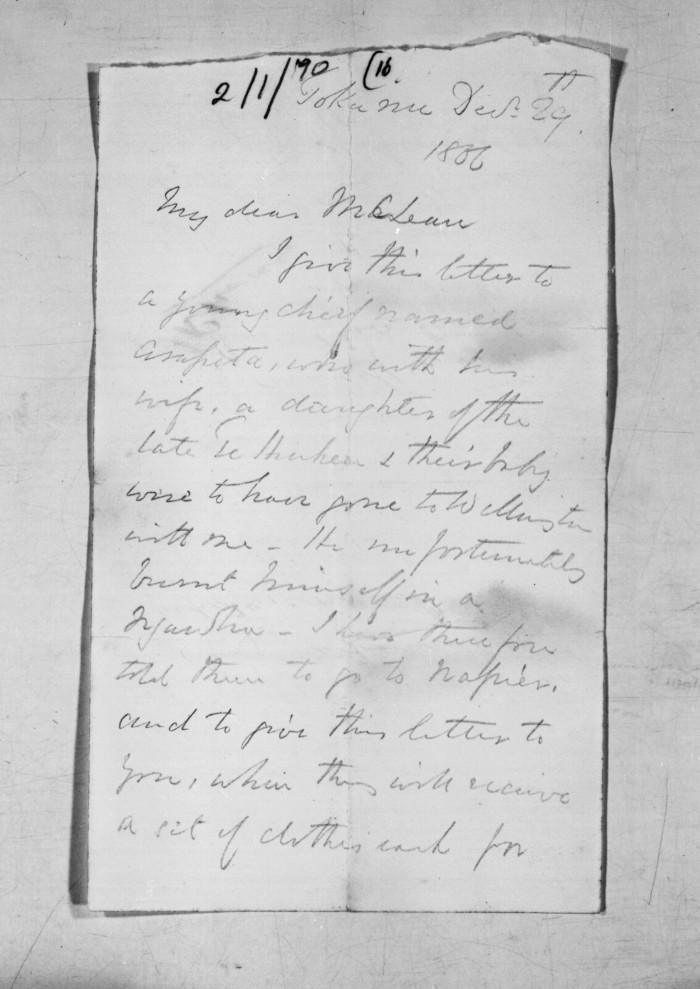 2/1/90 (16.
Tokanu Decr. 29th.
1866
My dear McLean
I give this letter to
a young chief named
who with his
wife, a daughter of the
late Te Heuheu & their baby
were to have gone to Wellington
with me - He unfortunately
burnt himself in a
Ngawha - I have therefore
told them to go to Napier,
and to give this letter to
you, when they will receive
a set of clothes each for